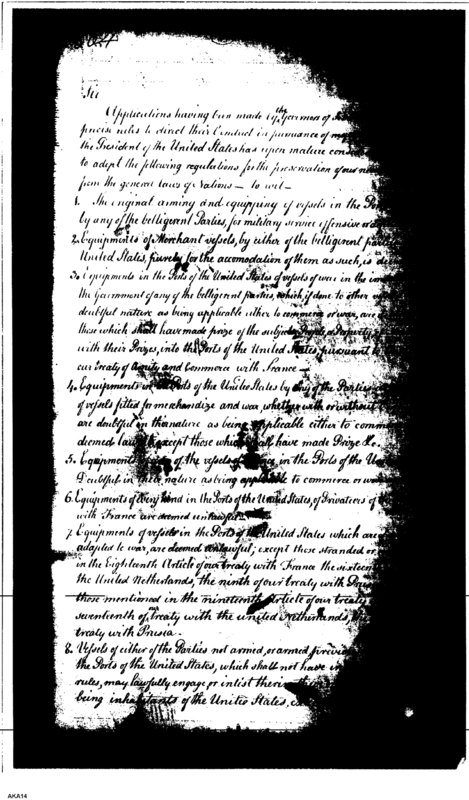 Sir
Applications having been made by the Governors of
precise rules to direct their Conduct in pursuance of
the President of the United States has upon mature
to adopt the following regulations for the preservation of our
from the general laws of Nations — to wit —
1. The original arming and equipping of vessels in the
by any of the belligerent Parties, for military service offensive
2. Equipments of Merchant vessels, by either of the belligerent
United States, purely for the accomodation of them as such, is
3. Equipments in the Ports of the United States of vessels of war in the
the Government of any of the belligerent parties, which if done to other
doubtful nature as being applicable either to commerce or war, are
those which shall have made prize of the subjects, People or Property
with their Prizes, into the Ports of the United States, pursuant
our Treaty of Amity and Commerce with France —
4. Equipments in the Ports of the United States by any of the Parties
of vessels fitted for merchandize and war, whether with or without
are doubtful in their nature as being applicable either to
deemed lawful, except those which shall have made Prize &c.
5. Equipments of the vessels of in the Ports of the
Doubtful in their nature as being applicable to commerce or
6. Equipments of every kind in the Ports of the United States, of Privateers of
with France are deemed unlawful —
7. Equipments of vessels in the Ports of the United States which are
adapted to war, are deemed unlawful; except those stranded or
in the Eighteenth Article of our treaty with France the
the United Netherlands, the ninth of our treaty with
those mentioned in the nineteenth Article of our treaty
seventeenth of treaty with the United Netherlands,
treaty with Prusia —
8. Vessels of either of the Parties not armed, or armed
the Ports of the United States, which shall not have
rules, may lawfully engage or inlist therein
being inhabitants of the United States,
AKA14